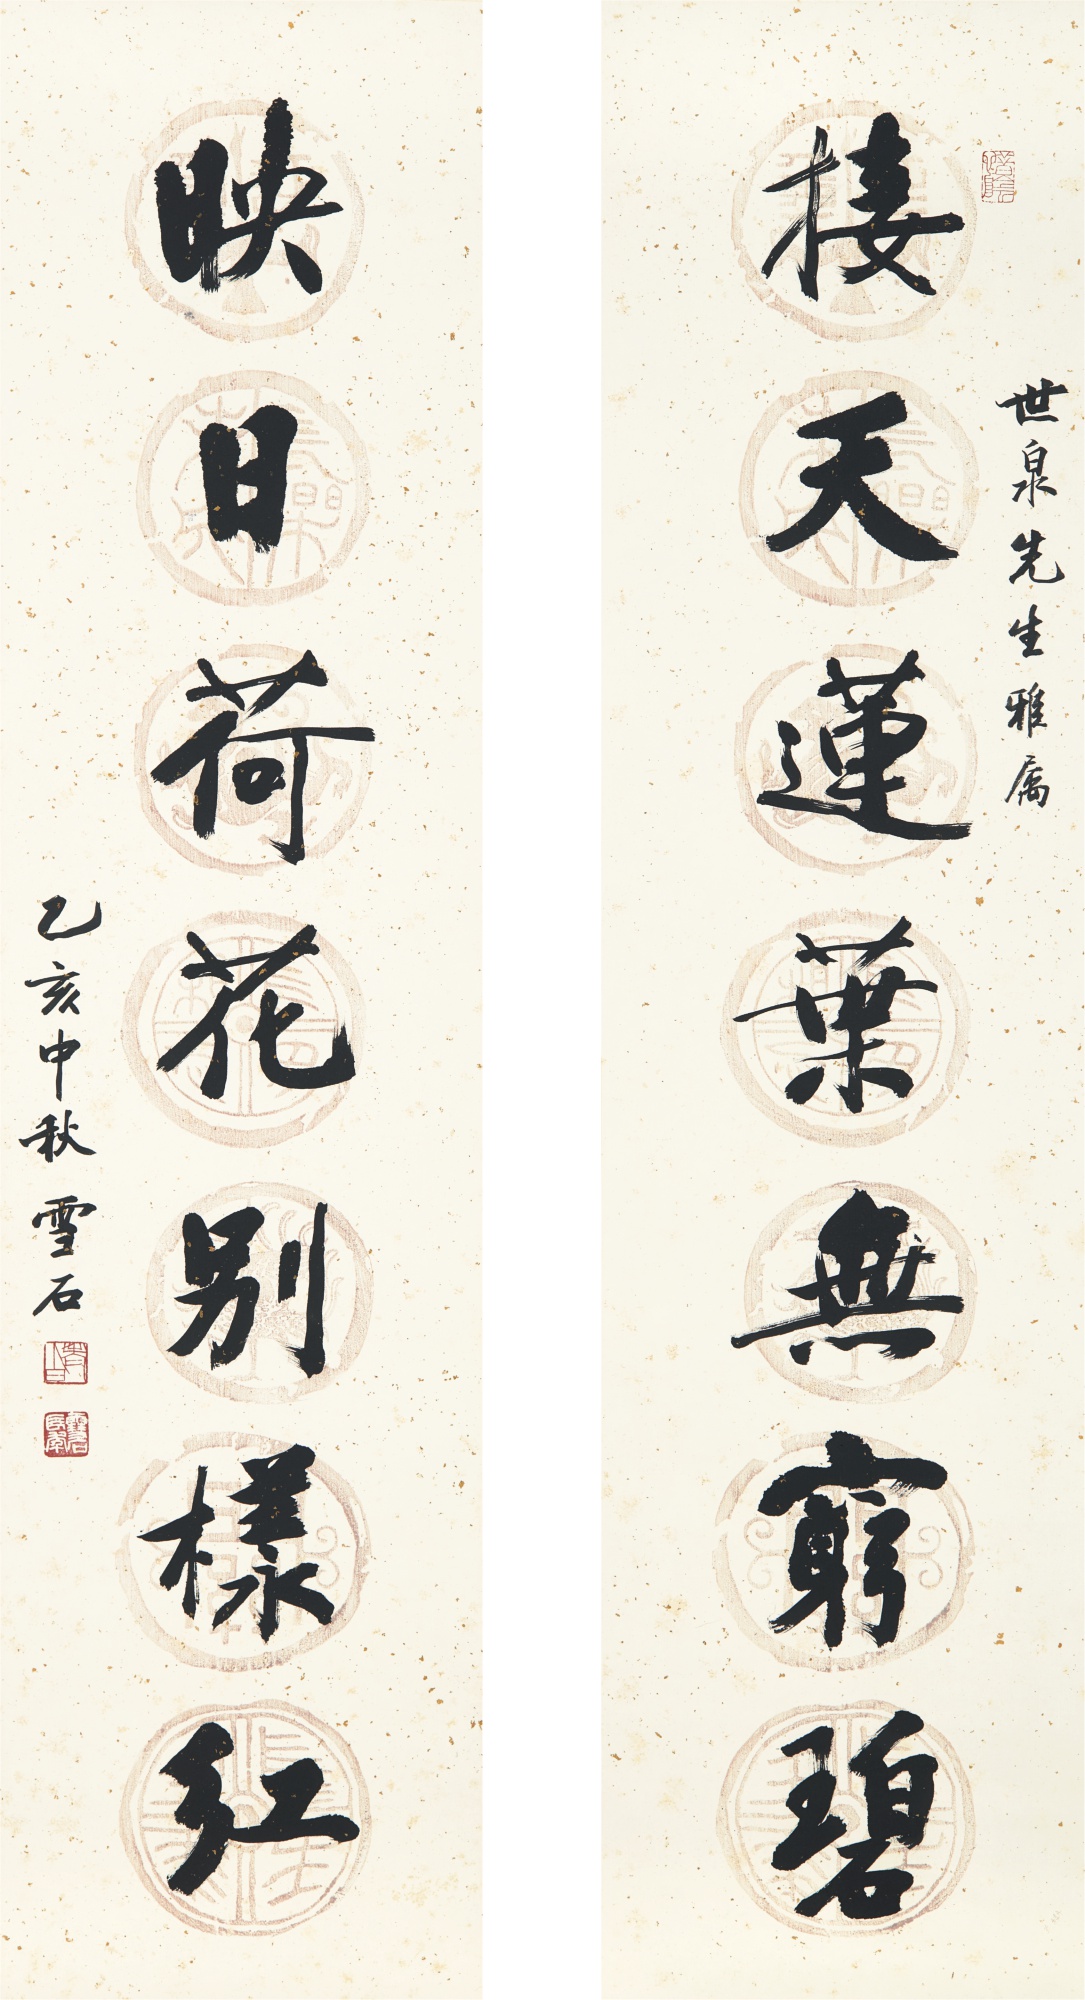 世泉先生雅属
接天蓮葉無窮碧
映日荷花别樣红
乙亥中秋 雪石